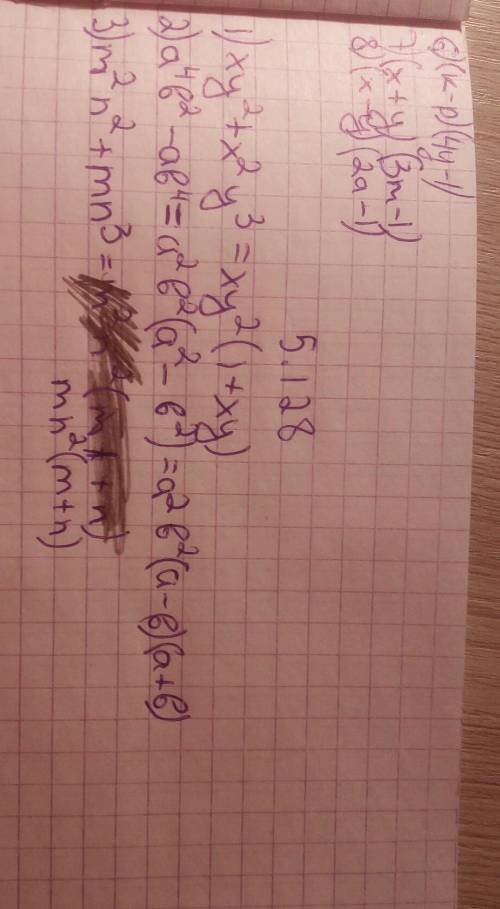 6)(k-p)(4y-1)
7)(x+y)(3m-1)
8)(x-y)(2a-1)
5.128
1) xy²+x²y³=xy²(1+xy)
2) a⁴b²-ab⁴=a²b²(a²-b²)=a²b²(a-b)(a+b)
3) m²n²+mn³=
mn²(m+n)